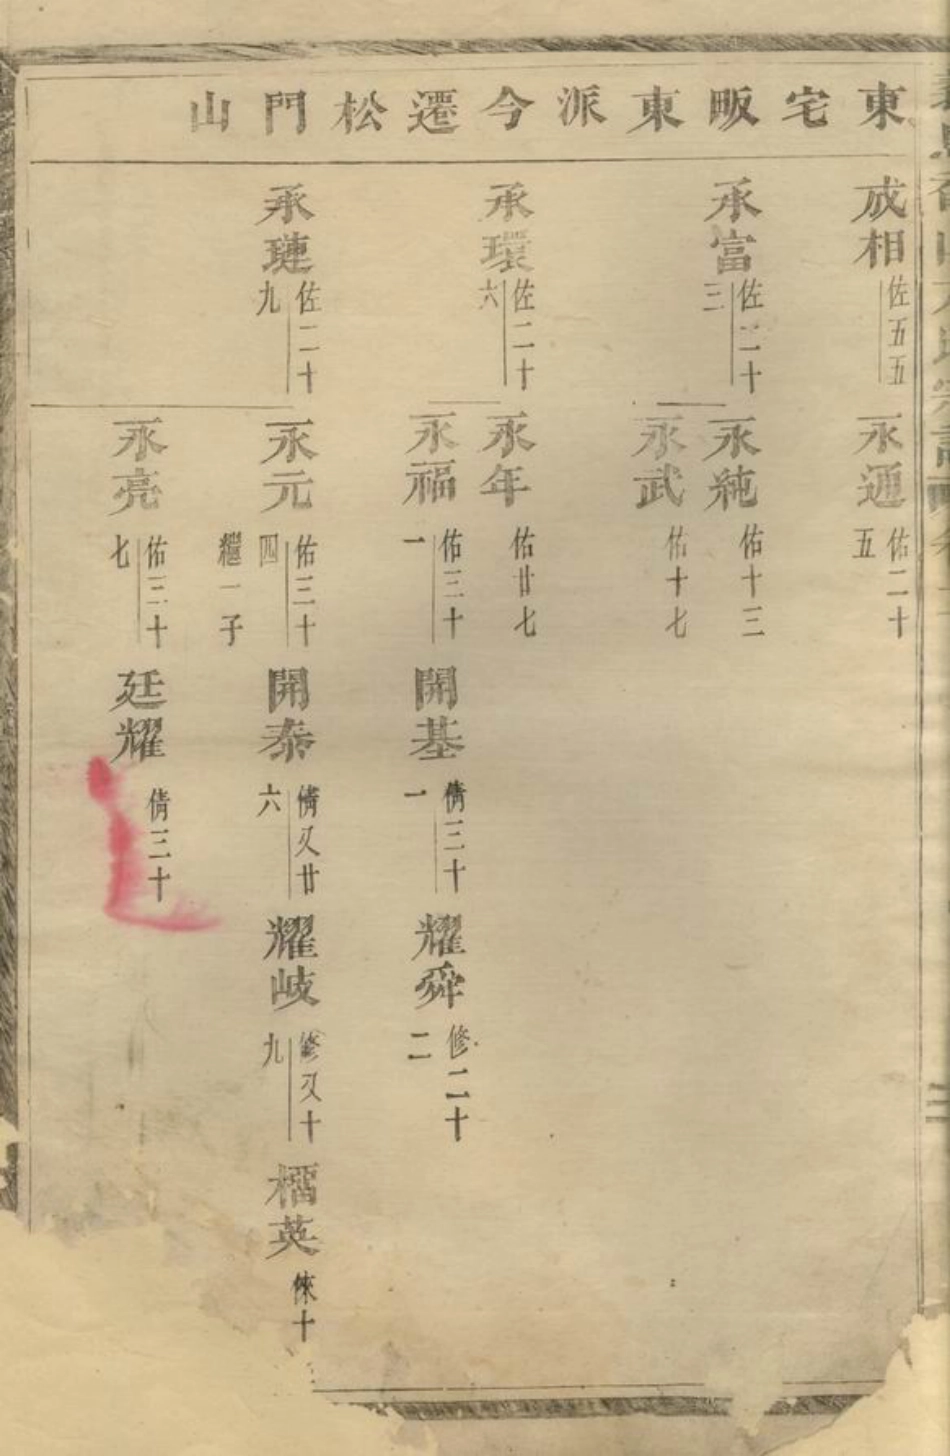 東宅畈東派今遷松門山
成相 佐五五
永通 佑二十五
承富 佐二十三
永純 佑十三
永武 佑十七
承環 佐二十六
永年 佑廿七
永福 佑三十一
開基 倩三十一
耀舜 修二十二
承璉 佐二十九
永元 佑三十四 繼一子
開泰 倩又廿六
耀岐 修又十九
榴英 倈十
永亮 佑三十七
廷耀 倩三十